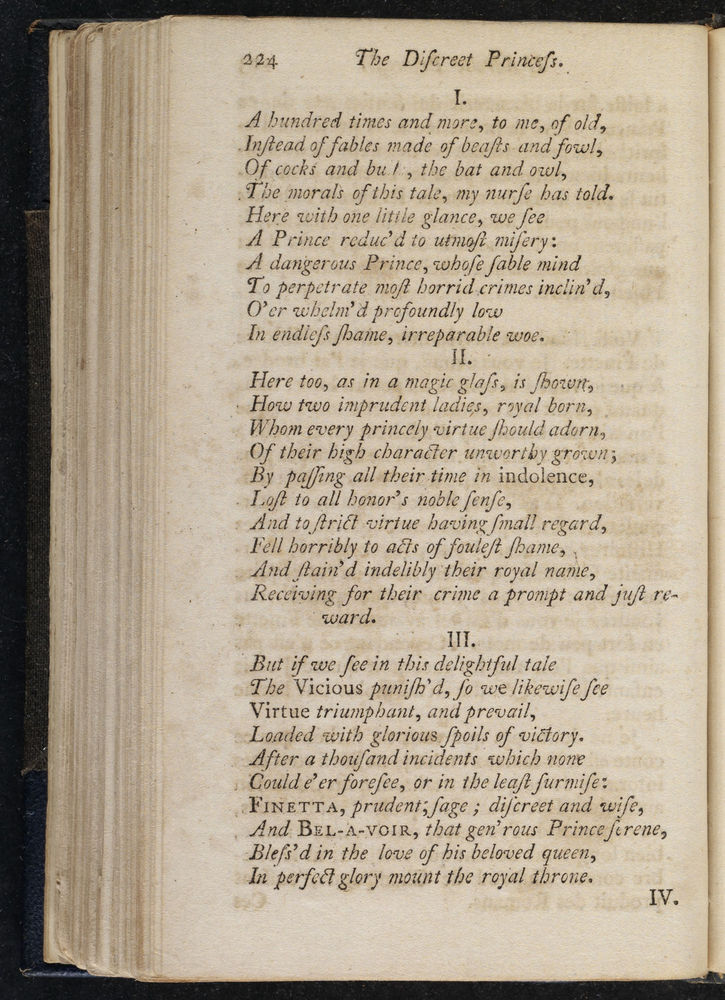 224 The Diſcreet Princeſs.
I.
A hundred times and more, to me, of old,
Inſtead of fables made of beaſts and fowl,
Of cocks and , the bat and owl,
The morals of this tale, my nurſe has told.
Here with one little glance, we ſee
A Prince reduc'd to utmoſt miſery:
A dangerous Prince, whoſe ſable mind
To perpetrate moſt horrid crimes inclin'd,
O'er whelm'd profoundly low
In endleſs ſhame, irreparable woe.
II.
Here too, as in a magic glaſs, is ſhown,
How two imprudent ladies, royal born,
Whom every princely virtue ſhould adorn,
Of their high character unworthy grown;
By paſſing all their time in indolence,
Loſt to all honor's noble ſenſe,
And to ſtrict virtue having ſmall regard,
Fell horribly to acts of fouleſt ſhame,
And ſtain'd indelibly their royal name,
Receiving for their crime a prompt and juſt re-
ward.
III.
But if we ſee in this delightful tale
The Vicious puniſh'd, ſo we likewiſe ſee
Virtue triumphant, and prevail,
Loaded with glorious ſpoils of victory.
After a thouſand incidents which none
Could e'er foreſee, or in the leaſt ſurmiſe:
FINETTA, prudent; ſage; diſcreet and wiſe,
And BEL-A-VOIR, that gen'rous Prince ſerene,
Bleſs'd in the love of his beloved queen,
In perfect glory mount the royal throne.
IV.